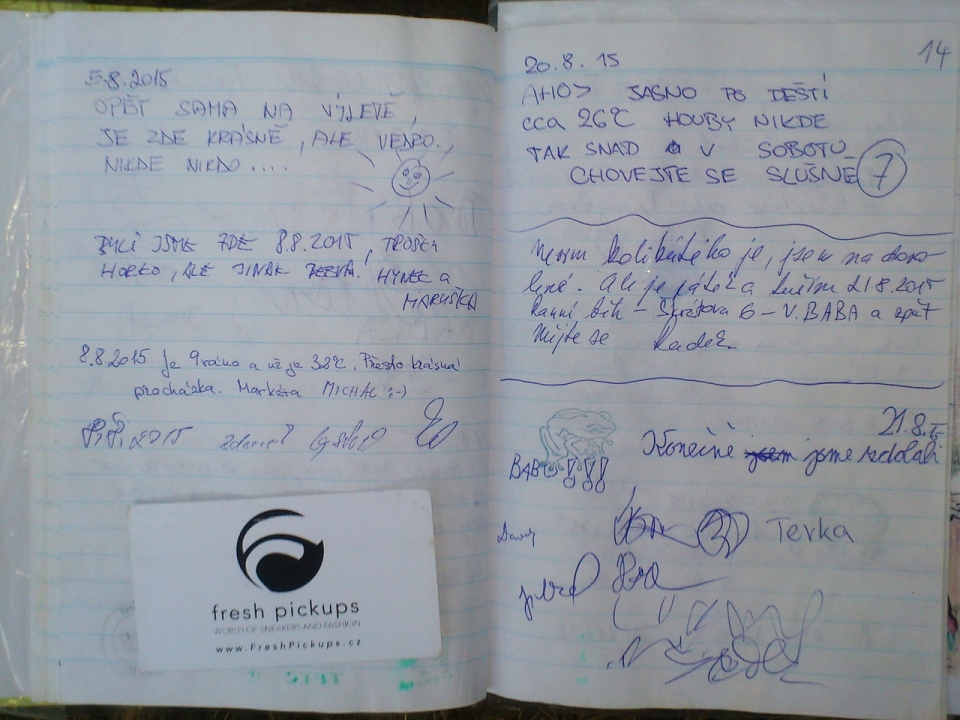 5.8.2015
OPĚT SAMA NA VÝLETĚ,
JE ZDE KRÁSNĚ, ALE VEDRO.
NIKDE NIKDO....
BYLI JSME ZDE 8.8.2015, TROŠKU
HORKO, ALE JINAK BEZVA! HYNEK a
MARUŠKA
8.8.2015 je 9 ráno a už je 32°C. Přesto krásná
procházka. Markéta MICHAL :-)
2015
fresh pickups
WORLD OF SNEAKERS AND FASHION
www.FreshPickups.cz
14
20.8.15
AHOJ JASNO PO DEŠTÍ
cca 26°C HOUBY NIKDE
TAK SNAD V SOBOTU
CHOVEJTE SE SLUŠNĚ 7
Nevím kolikátého je, jsem na dovo-
lené. Ale je pátek a tuším 21.8.2015
Ranní běh - 6 - V.BABA a zpět
Mějte se Radek
21.8.
BABO!!! Konečně jsme zdolali
Terka